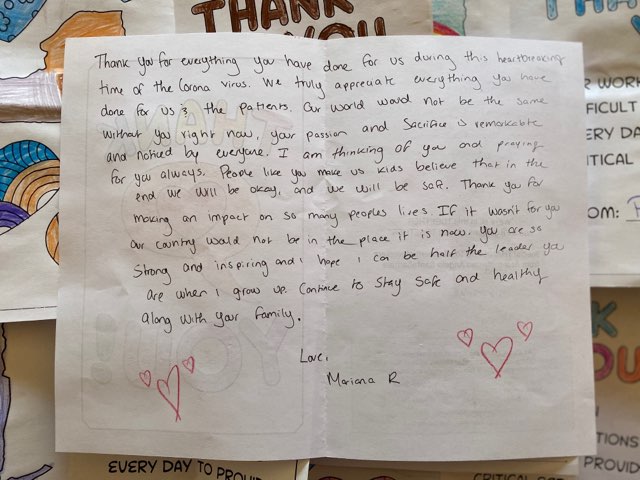 THANK
YOU
Thank you for everything you have done for us during this heartbreaking
time of the Corona virus. We truly appreciate everything you have
done for us & the patients. Our world would not be the same
without you right now, your passion and sacrifice is remarkable
and noticed by everyone. I am thinking of you and praying
for you always. People like you make us kids believe that in the
end we will be okay, and we will be safe. Thank you for
making an impact on so many peoples lives. If it wasn't for you
our country would not be in the place it is now. You are so
strong and inspiring and I hope I can be half the leader you
are when I grow up. Continue to stay safe and healthy
along with your family.
Love,
Mariana R
R WORK
FFICULT
ERY DA
ITICAL
OM:
OU
TIONS
PROVID
EVERY DAY TO PROVID